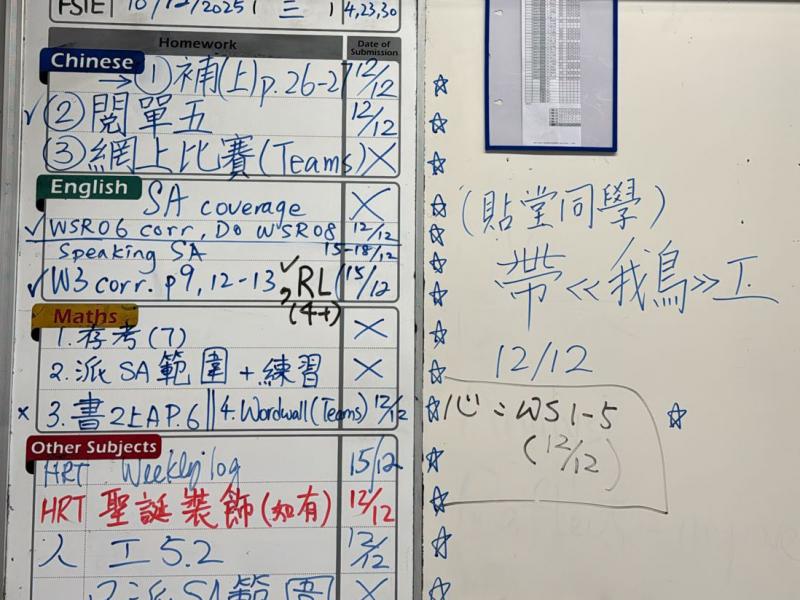 FSIE 10/12/2025 (三) 4,23,30
Homework Date of Submission
Chinese
→①補(上)p.26-27 12/12
✓②閱單五 12/12
③網上比賽(Teams) X
English
SA coverage X
✓WSR06 corr, Do WSR08 12/12
Speaking SA 15-18/12
✓W3 corr. p9, 12-13 ✓RL 15/12
(4+)
Maths
1.存考(7) X
2.派SA範圍+練習 X
x 3.書2上AP.6 || 4.Wordwall(Teams) 12/12
Other Subjects
HRT Weekly log 15/12
HRT 聖誕裝飾(如有) 12/12
人 工5.2 12/12
派SA範圍 X
(貼堂同學)
帶《我鳥》工
12/12
心:WS1-5
(12/12)